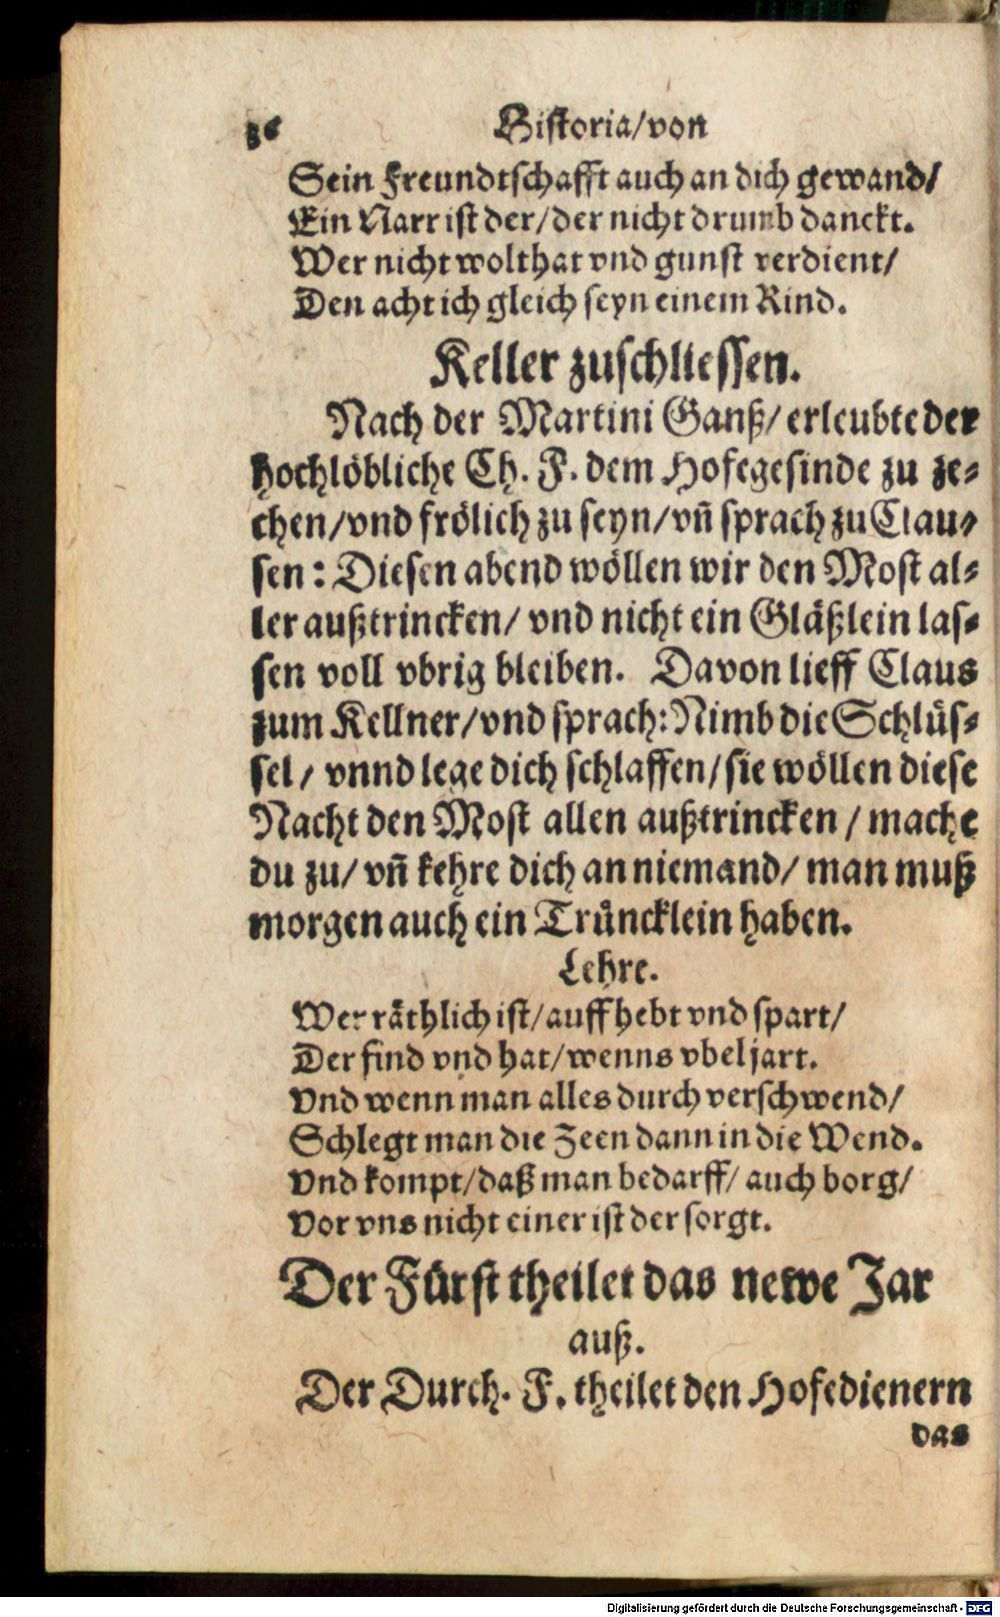 36 Historia/von
Sein Freundtschafft auch an dich gewand/
Ein Narr ist der/der nicht drumb danckt.
Wer nicht wolthat vnd gunst verdient/
Den acht ich gleich seyn einem Rind.
Keller zuschliessen.
Nach der Martini Ganß/ erleubte der
hochlöbliche Ch. F. dem Hofegesinde zu ze⸗
chen/vnd frölich zu seyn/vñ sprach zu Clau⸗
sen: Diesen abend wöllen wir den Most al⸗
ler außtrincken/ vnd nicht ein Gläßlein las⸗
sen voll vbrig bleiben. Davon lieff Claus
zum Kellner/vnd sprach: Nimb die Schlüs⸗
sel/ vnnd lege dich schlaffen/sie wöllen diese
Nacht den Most allen außtrincken/ mache
du zu/ vñ kehre dich an niemand/ man muß
morgen auch ein Trüncklein haben.
Lehre.
Wer räthlich ist/auffhebt vnd spart/
Der find vnd hat/wenns vbel jart.
Vnd wenn man alles durch verschwend/
Schlegt man die Zeen dann in die Wend.
Vnd kompt/daß man bedarff/ auch borg/
Vor vns nicht einer ist der sorgt.
Der Fürst theilet das newe Jar
auß.
Der Durch. F. theilet den Hofedienern
das
Digitalisierung gefördert durch die Deutsche Forschungsgemeinschaft - DFG